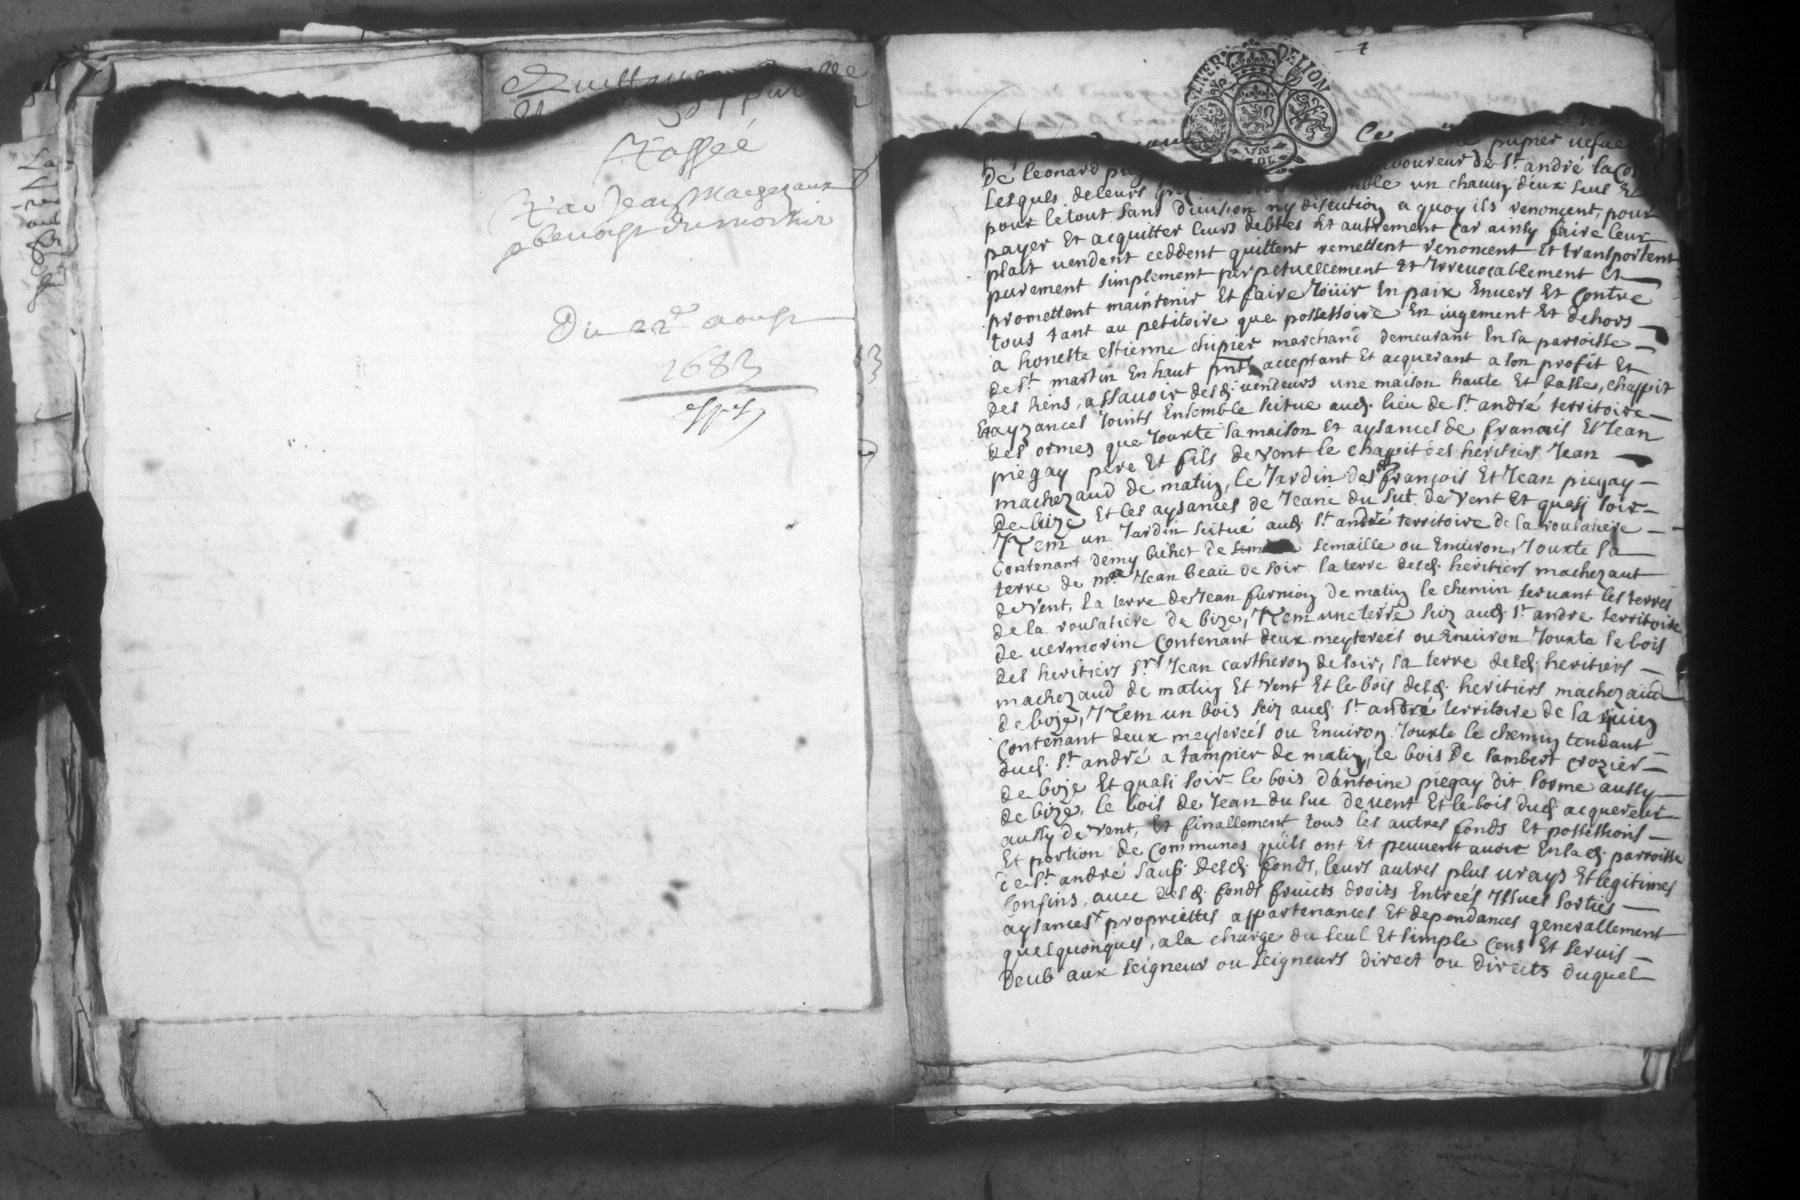 Quittance
Passée
Par Jean Machezaux
a benoist dumortier
Du 22e aoust
1683
GENER DE LION
VN
SOL
pupier vefue
De leonard laboureur de St. andré la
Lesquls de leurs vn chaucn deux seul Et
pour le tout sans division ny discution a quoy ils renoncent, pour
payer Et acquitter leurs debtes Et autrement Car ainsy faire leur
plait vendent ceddent quittent remettent renoncent Et transportent
purement simplement perpetuellement Et Irreuocablement Et
promettent maintenir Et faire Joüir En paix Enuers Et Contre
tous tant au petitoire que possessoire En iugement Et dehors
a honeste estienne chipier marchand demeurant En la parroisse
de St. martin En haut pnt acceptant Et acquerant a son profit Et
des siens, assauoir desd. vendeurs une maison haute Et basse, chappit
Et aysances Joints Ensemble scitue aud. lieu de St. andré territoire
des ormes que Jouxte la maison Et aysances de francois Et Jean
piegay pere Et fils de vent le chappit des heritiers Jean
machezaud de matin, le Jardin desd. françois Et Jean piegay
de bize Et les aysances de Jeane du sut de vent Et quasi soir
Item un Jardin scitué aud. St. andré territoire de la rousatiere
Contenant demy bichet de semaille ou Enuiron, Jouxte la
terre de me. Jean beau de soir la terre desd. heritiers machezaut
de vent, la terre de Jean furnion de matin le chemin seruant les terres
de la rousatiere de bize, Item une terre sciz aud. St. andre territoire
de vermorin Contenant deux meyterées ou Enuiron Jouxte le bois
des heritiers srs Jean cartheron de soir, la terre desd. heritiers
machezaud de matin Et vent Et le bois desd. heritiers machezaud
de bize, Item un bois sciz aud. St. andré territoire de la
Contenant deux meyterées ou Enuiron Jouxte le chemin tendant
dud. St. andré a tampier de matin, le bois De Lambert crozier
de bize Et quasi soir le bois d'antoine piegay dit lorme aussy
de bize, le bois de Jean du suc de vent Et le bois dud. acquereur
aussy de vent, Et finallement tous les autres fonds Et possessions
Et portion de Communes qu'ils ont Et peuuent auoir En lad. parroisse
de St. andré sauf desd. fonds, leurs autres plus urays Et legitimes
Confins, auec desd. fonds fruicts droits Entreés Issues sorties
aysances propriettés appartenances Et dependances generallement
quelquonques, a la charge du seul Et simple Cens Et seruis
Deub aux seigneur ou seigneurs direct ou directs duquel